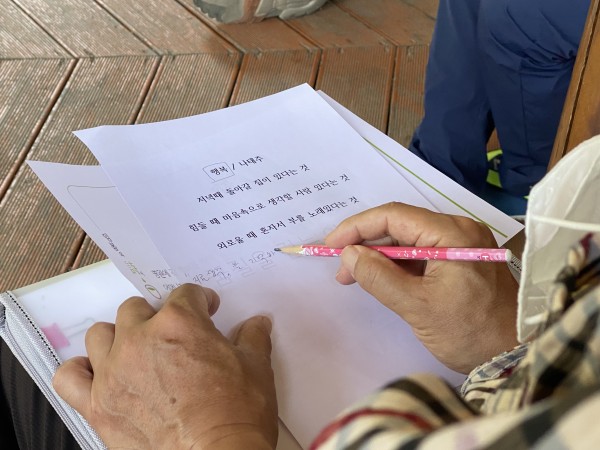 행복 / 나태주
저녁때 돌아갈 집이 있다는 것
힘들 때 마음속으로 생각할 사람 있다는 것
외로울 때 혼자서 부를 노래있다는 것